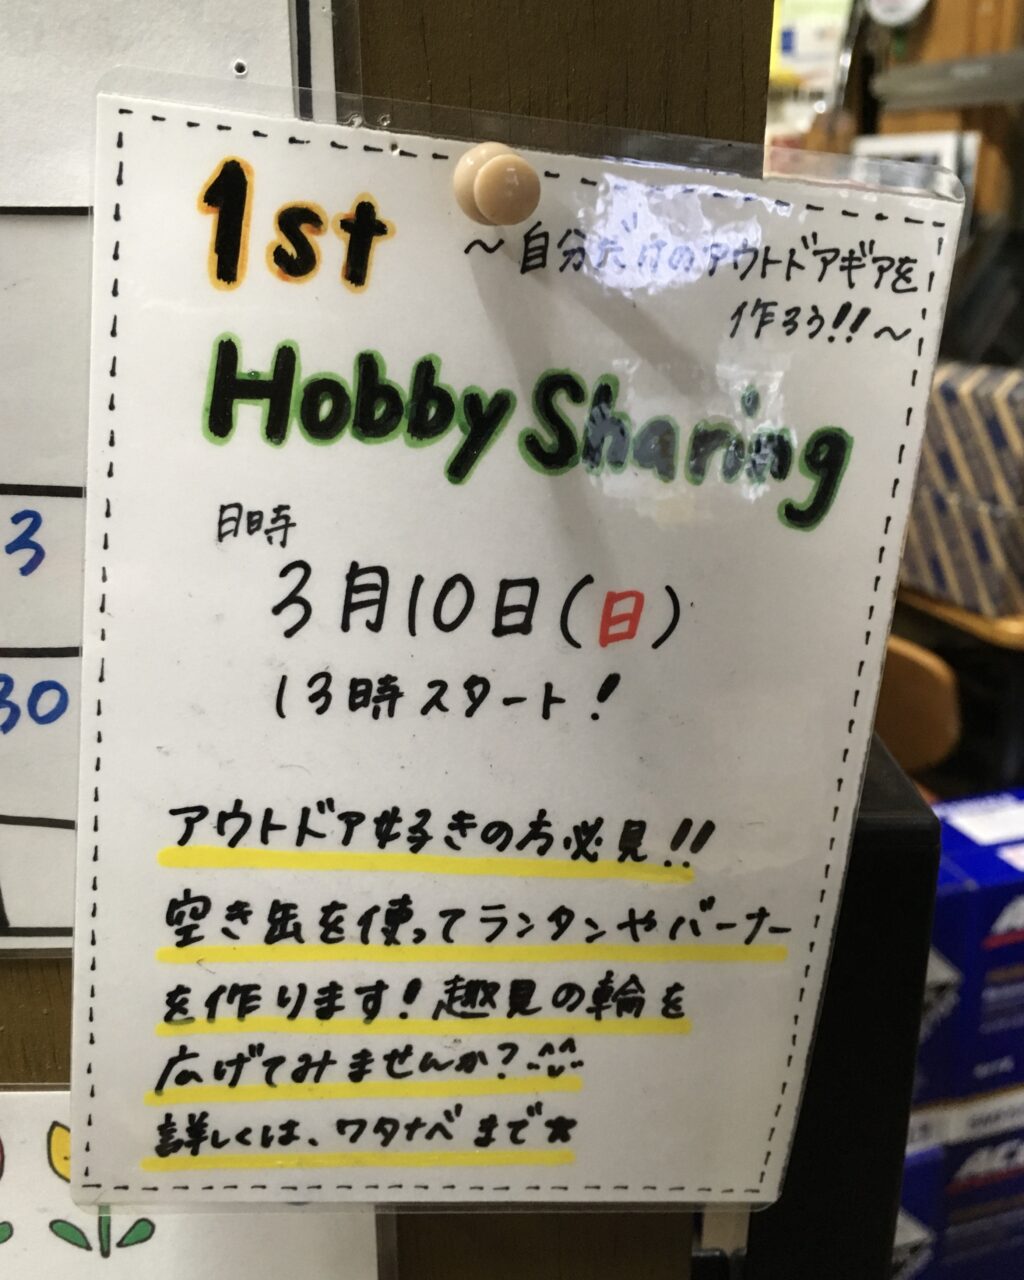 1st
～自分だけのアウトドアギアを
作ろう!!～
Hobby Sharing
日時
3月10日(日)
13時スタート!
アウトドア好きの方必見!!
空き缶を使ってランタンやバーナー
を作ります!趣見の輪を
広げてみませんか?^^
詳しくは、ワタナベまで☆
3
30